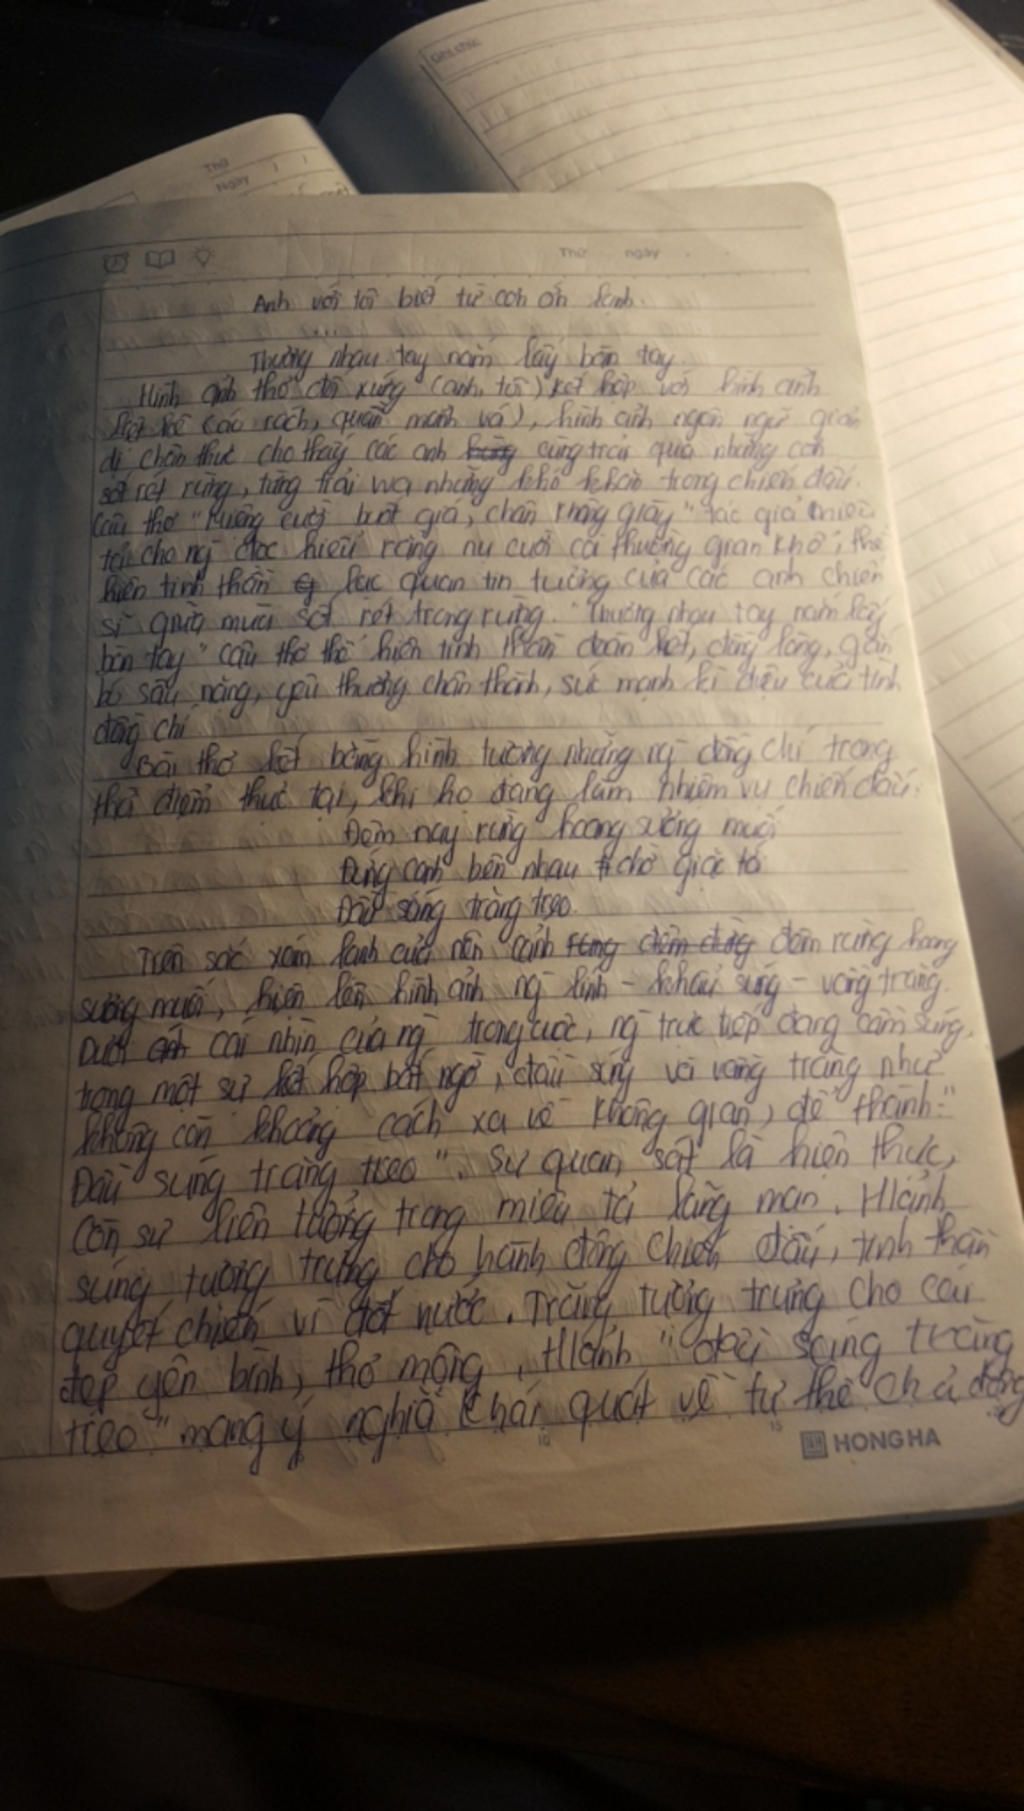 Ghi chú:
Thứ
Ngày
Thứ ngày
Anh với tôi biết từ cơn ớn lạnh.
...
Thương nhau tay nắm lấy bàn tay.
Hình ảnh thơ đối xứng (anh, tôi) kết hợp với hình ảnh
liệt kê (áo rách, quần mảnh vá), hình ảnh ngôn ngữ giản
dị chân thực cho thấy các anh cùng trải qua những cơn
sốt rét rừng, từng trải wa những khó khăn trong chiến đấu.
Câu thơ "Miệng cười buốt giá, chân không giày" tác giả miêu
tả cho ng đọc hiểu rằng nụ cười coi thường gian khổ, thể
hiện tinh thần lạc quan tin tưởng của các anh chiến
sĩ giữa mùa sốt rét trong rừng. "Thương nhau tay nắm lấy
bàn tay" câu thơ thể hiện tinh thần đoàn kết, đồng lòng, gắn
bó sâu nặng, yêu thương chân thành, sức mạnh kì diệu của tình
đồng chí
Bài thơ kết bằng hình tượng những ng đồng chí trong
thời điểm thực tại, khi họ đang làm nhiệm vụ chiến đấu:
Đêm nay rừng hoang sương muối
Đứng cạnh bên nhau chờ giặc tới
Đầu súng trăng treo.
Trên sắc xám lạnh của nền cảnh đêm rừng hoang
sương muối, hiện lên hình ảnh ng lính - khẩu súng - vầng trăng.
Dưới cái nhìn của ng trong cuộc, ng trực tiếp đang cầm súng,
trong một sự kết hợp bất ngờ, đầu súng và vầng trăng như
không còn khoảng cách xa về không gian, để thành: "
Đầu súng trăng treo". Sự quan sát là hiện thực,
còn sự liên tưởng trong miêu tả lãng mạn. H/ảnh
súng tượng trưng cho hành động chiến đấu, tinh thần
quyết chiến vì đất nước. Trăng tượng trưng cho cái
đẹp yên bình, thơ mộng, H/ảnh "đầu súng trăng
treo" mang ý nghĩa khái quát về tư thế chủ động
HONG HA